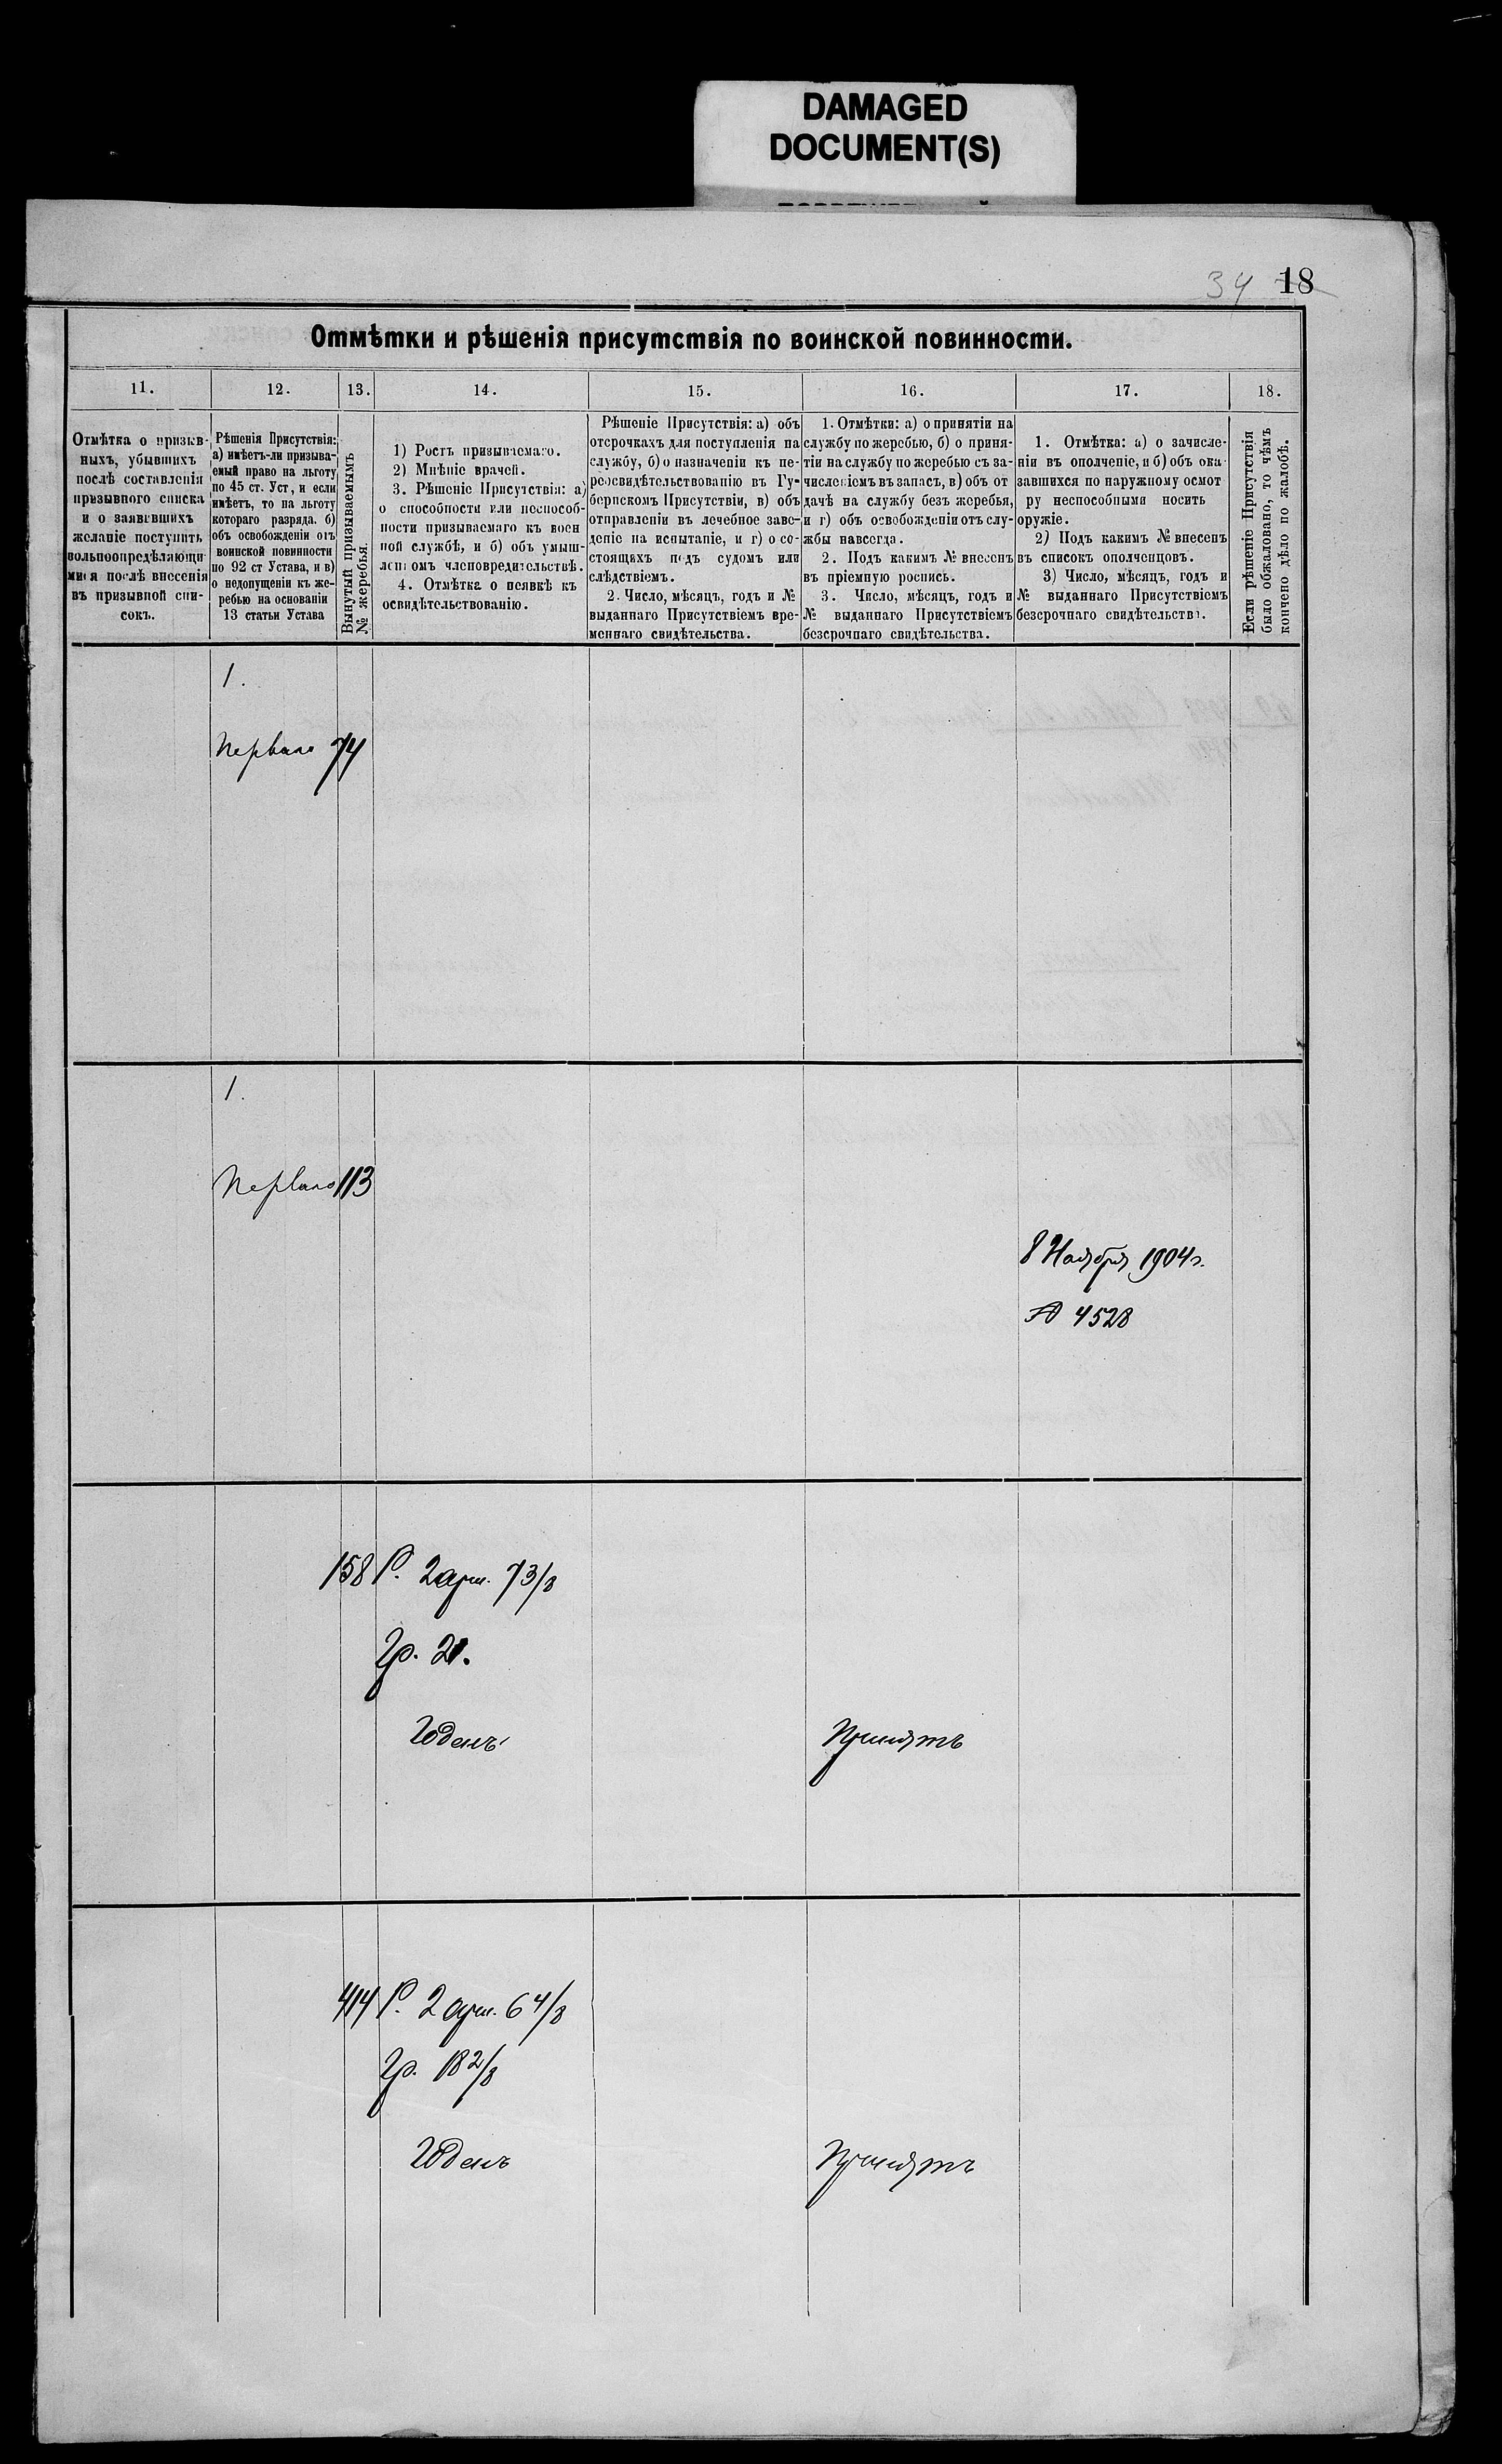 DAMAGED
DOCUMENT(S)
34 18
Отмѣтки и рѣшенія присутствія по воинской повинности.
11. 12. 13. 14. 15. 16. 17. 18.
Отмѣтка о призыв-
ныхъ, убывшихъ
послѣ составленія
призывного списка
и о заявившихъ
желаніе поступить
вольноопредѣляющи
мися послѣ внесенія
въ призывной спи-
сокъ.
Рѣшенія Присутствія:
а) имѣетъ-ли призыва-
емый право на льготу
по 45 ст. Уст, и если
имѣетъ, то на льготу
котораго разряда. б)
объ освобожденіи отъ
воинской повинности
по 92 ст Устава, и в)
о недопущеніи къ же-
ребью на основаніи
13 статьи Устава
Вынутый призываемымъ
№ жеребья.
1) Ростъ призываемаго.
2) Мнѣніе врачей.
3. Рѣшеніе Присутствія: а)
о способности или неспособ-
ности призываемаго къ воен
ной службѣ, и б) объ умыш-
ленномъ членовредительствѣ.
4. Отмѣтка о неявкѣ къ
освидѣтельствованію.
Рѣшеніе Присутствія: а) объ
отсрочкахъ для поступленія на
службу, б) о назначеніи къ пе-
реосвидѣтельствованію въ Гу-
бернскомъ Присутствіи, в) объ
отправленіи въ лечебное заве-
деніе на испытаніе, и г) о со-
стоящихъ подъ судомъ или
слѣдствіемъ.
2. Число, мѣсяцъ, годъ и №
выданнаго Присутствіемъ вре-
меннаго свидѣтельства.
1. Отмѣтки: а) о принятіи на
службу по жеребью, б) о приня-
тіи на службу по жеребью съ за-
численіемъ въ запасъ, в) объ от
дачѣ на службу безъ жеребья,
и г) объ освобожденіи отъ слу-
жбы навсегда.
2. Подъ какимъ № внесенъ
въ пріемную роспись.
3. Число, мѣсяцъ, годъ и
№ выданнаго Присутствіемъ
безсрочнаго свидѣтельства.
1. Отмѣтка: а) о зачисле-
ніи въ ополченіе, и б) объ ока
завшихся по наружному осмот
ру неспособными носить
оружіе.
2) Подъ какимъ № внесенъ
въ списокъ ополченцовъ.
3) Число, мѣсяцъ, годъ и
№ выданнаго Присутствіемъ
безсрочнаго свидѣтельства.
Если рѣшеніе Присутствія
было обжаловано, то чѣмъ
кончено дѣло по жалобѣ.
1.
Перваго 74
1.
Перваго 113
8 Ноября 1904 г.
№ 4528
158 Р. 2 арш. 7 3/8
Гр. 21.
Годенъ Принятъ
414 Р. 2 арш. 6 4/8
Гр. 18 2/8
Годенъ Принятъ